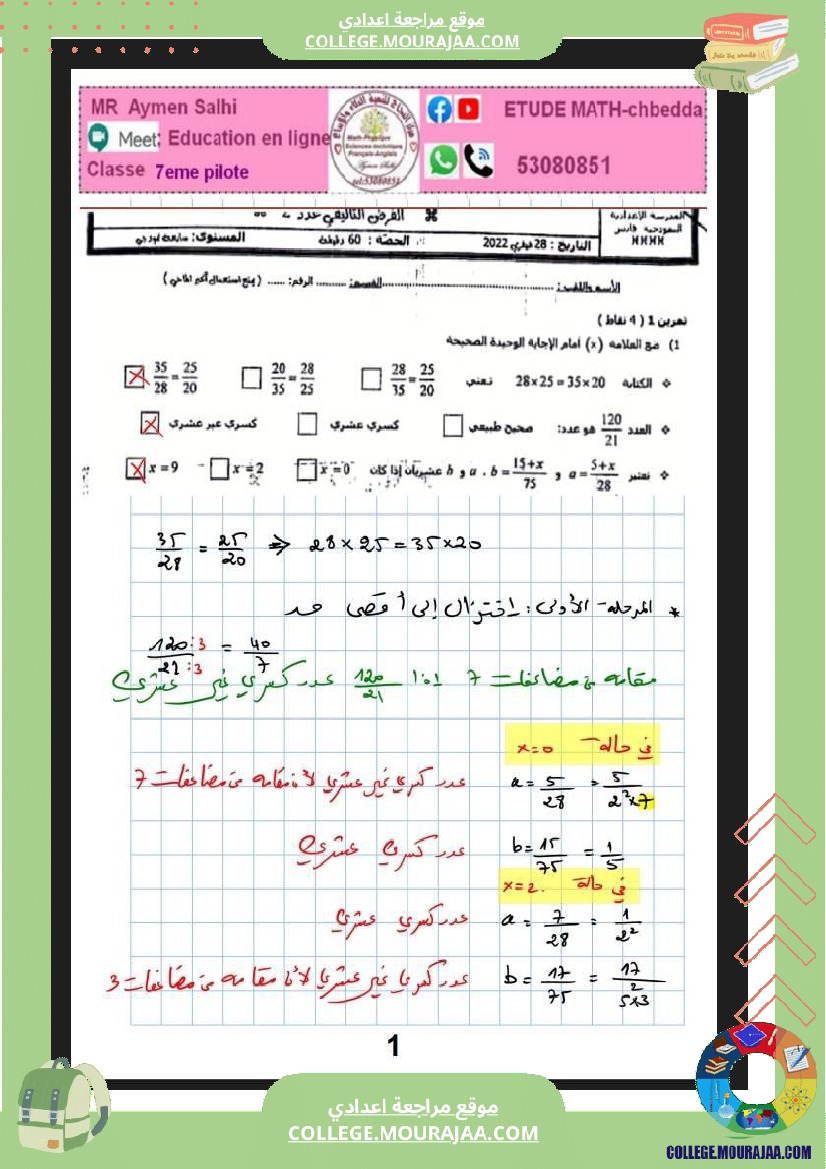 موقع مراجعة اعدادي
COLLEGE.MOURAJAA.COM
MR Aymen Salhi
Meet: Education en ligne
Classe 7eme pilote
ETUDE MATH-chbedda
53080851
المدرسة الإعدادية
النموذجية
الفرض التأليفي عدد 2
التاريخ : 28 فيفري 2022 الحصة : 60 دقيقة المستوى:
الاسم واللقب: القسم: الرقم:
تمرين 1 ( 4 نقاط )
1) ضع العلامة (x) أمام الإجابة الوحيدة الصحيحة
الكتابة 28×25 = 35×20 تعني 28/35 = 25/20 20/35 = 28/25 35/28 = 25/20
العدد 120/21 هو عدد: صحيح طبيعي كسري عشري كسري غير عشري
نعتبر a = 5+x/28 و b = 15+x/75 . a و b عشريان إذا كان x = 0 x = 2 x = 9
35/28 = 25/20 ⇒ 28 × 25 = 35 × 20
* المرحلة الأولى : اختزال إلى أقصى حد
120:3/21:3 = 40/7
مقامه من مضاعفات 7 إذا 120/21 عدد كسري غير عشري
في حالة x=0
a = 5/28 = 5/2²×7 عدد كسري غير عشري لأن مقامه من مضاعفات 7
b = 15/75 = 1/5 عدد كسري عشري
في حالة x=2.
a = 7/28 = 1/2² عدد كسري عشري
b = 17/75 = 17/5²×3 عدد كسري غير عشري لأن مقامه من مضاعفات 3
1
موقع مراجعة اعدادي
COLLEGE.MOURAJAA.COM
COLLEGE.MOURAJAA.COM